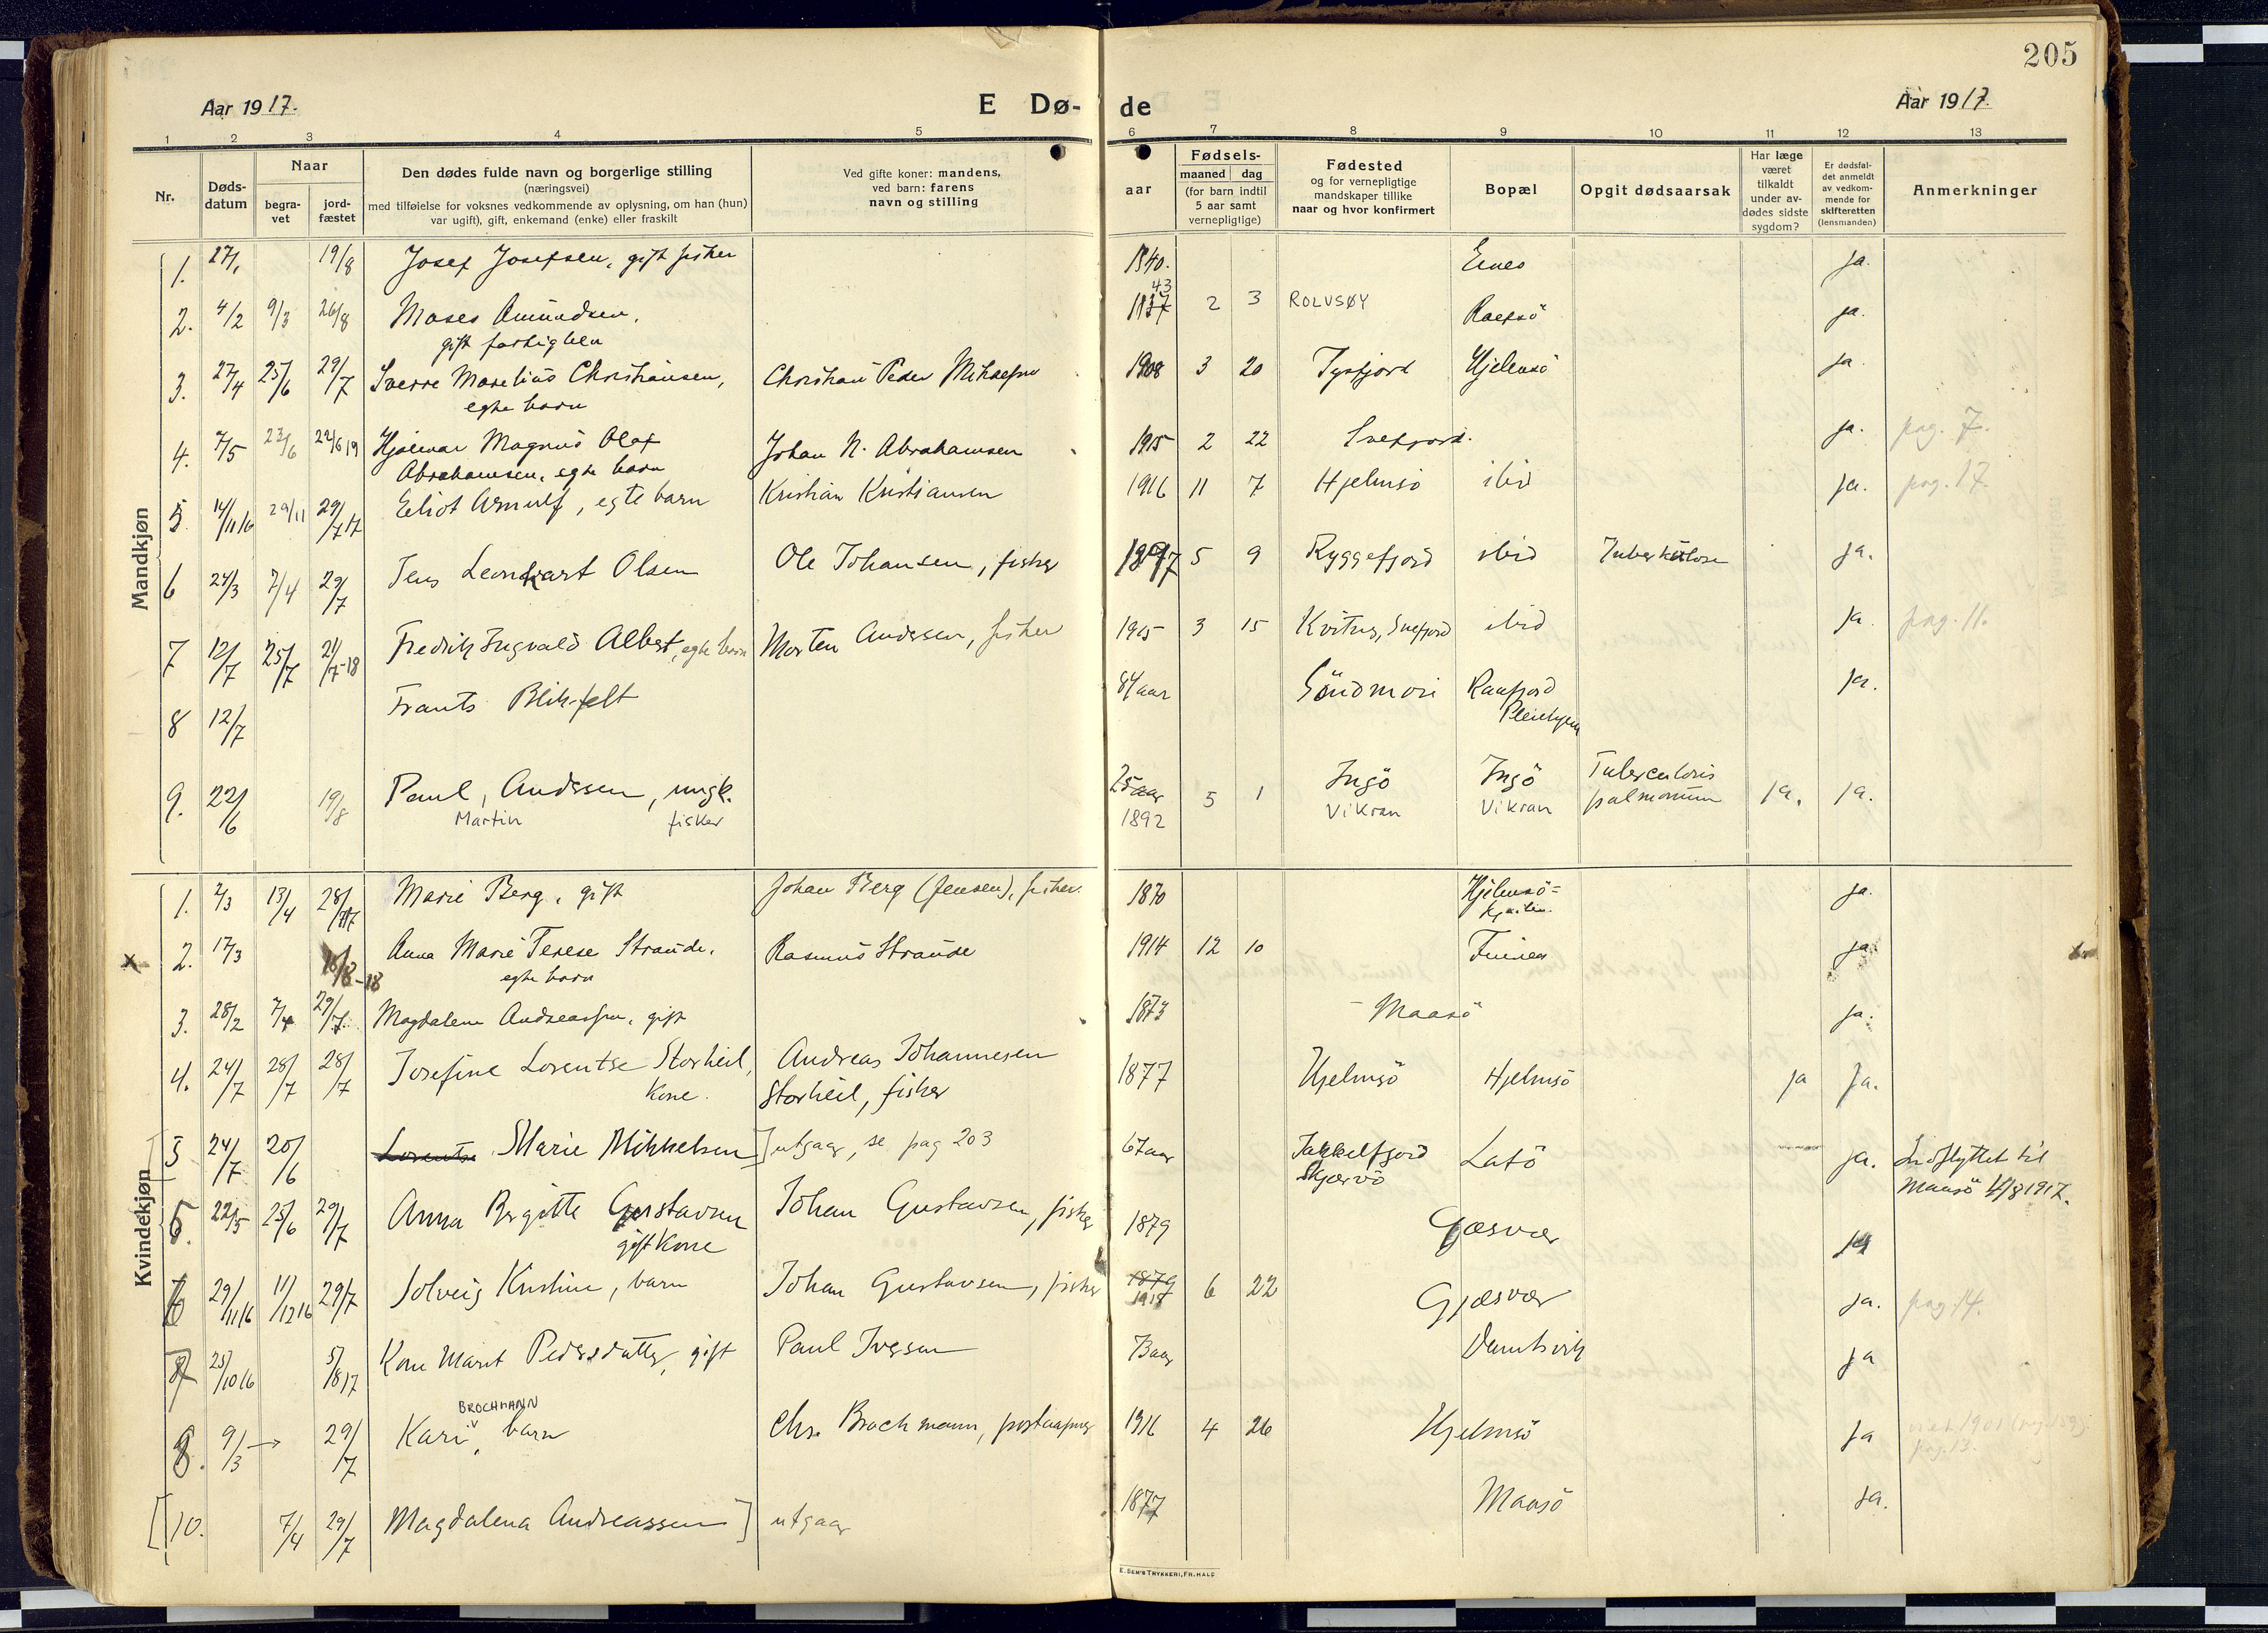 205
Aar 1917.
E Dø-
de
Aar 1917.
1 2 3 4 5 6 7 8 9 10 11 12 13
Nr.
Døds-
datum
Naar
begra-
vet
jord-
fæstet
Den dødes fulde navn og borgerlige stilling
(næringsvei)
med tilføielse for voksnes vedkommende av oplysning, om han (hun)
var ugift), gift, enkemand (enke) eller fraskilt
Ved gifte koner: mandens,
ved barn: farens
navn og stilling
aar
Fødsels-
maaned dag
(for barn indtil
5 aar samt
vernepligtige)
Fødested
og for vernepligtige
mandskaper tillike
naar og hvor konfirmert
Bopæl
Opgit dødsaarsak
Har læge
været
tilkaldt
under av-
dødes sidste
sygdom?
Er dødsfal-
det anmeldt
av vedkom-
mende for
skifteretten
(lensmanden)
Anmerkninger
Mandkjøn
1. 27/1 19/8 Josef Josefsen, gift fisker 1840. ja.
43
2. 4/2 9/3 26/8 Moses Amundsen, 1837 2 3 ROLVSØY ja.
gift
3. 27/4 25/6 29/7 Sverre Marelius Christiansen, Christian Peder 1908 3 20 Tysfjord Hjelmsö ja.
egte barn
4. 7/5 23/6 22/6 19 Hjalmar Magnus Olaf Johan N. Abrahamsen 1915 2 22 Snefjord. ja. pag. 7.
Abrahamsen, egte barn
5 14/11 16 29/11 29/7 17 Eliot Arnulf, egte barn Kristian Kristiansen 1916 11 7 Hjelmsö ibid ja. pag. 17.
6 24/3 7/4 29/7 Jens Leonhart Olsen Ole Johansen, fisker 5 9 Ryggefjord ibid Tuberkulose ja.
7 12/7 25/7 21/7-18 Fredrik Ingvald Albert, egte barn Morten Andersen, fisker 1915 3 15 Kvitnes, Snefjord ibid ja. pag. 11.
8 12/7 Frants Blikfelt 84 aar Söndmöri ja.
9. 22/6 19/8 Paul, Andersen, ungk. 25 aar 5 1 Ingö Ingö Tuberculosis ja. ja.
Martin fisker 1892 Vikran Vikran pulmonum
Kvindekjøn
1. 2/3 13/4 28/7 17 Marie Berg, gift Johan Berg (Jensen), fisker. 1870 Hjelmsö= ja.
x 2. 17/3 16/8-18 Anna Marie Terese Strande. Rasmus Strande 1914 12 10 ja.
egte barn
3. 28/2 7/4 29/7 Magdalena Andreassen, gift 1873 Maasö ja.
4. 24/7 28/7 28/7 Josefine Lorentse Storheil, Andreas Johannesen 1877 Hjelmsö Hjelmsö ja ja.
Kone. Storheil, fisker
5 24/7 20/6 Lorentse Marie Mikkelsen] utgaar, se pag 203 67 aar Jøkkelfjord Latö ja. Indflyttet til
Skjærvö Maasö 14/8 1917.
5. 22/5 25/6 29/7 Anna Birgitte Gustavsen Johan Gustavsen, fisker 1879 Gjæsvær ja
gift Kone
6 29/11 16 11/12 16 29/7 Solveig Kristine, barn Johan Gustavsen, fisker 1879 6 22 Gjæsvær ja. pag 14.
1915
7 25/10 16 5/8 17 Kone Marit Pedersdatter, gift Paul Iversen 73 aar ja
BROCHMANN
8. 9/3 → 29/7 Kari, barn Chr. Brochmann, postaapner 1916 4 26 Hjelmsö ja
pag. 13.
[10. 7/4 29/7 Magdalena Andreassen] utgaar 1877 Maasö ja.
E. SEM'S TRYKKERI, FR.HALD